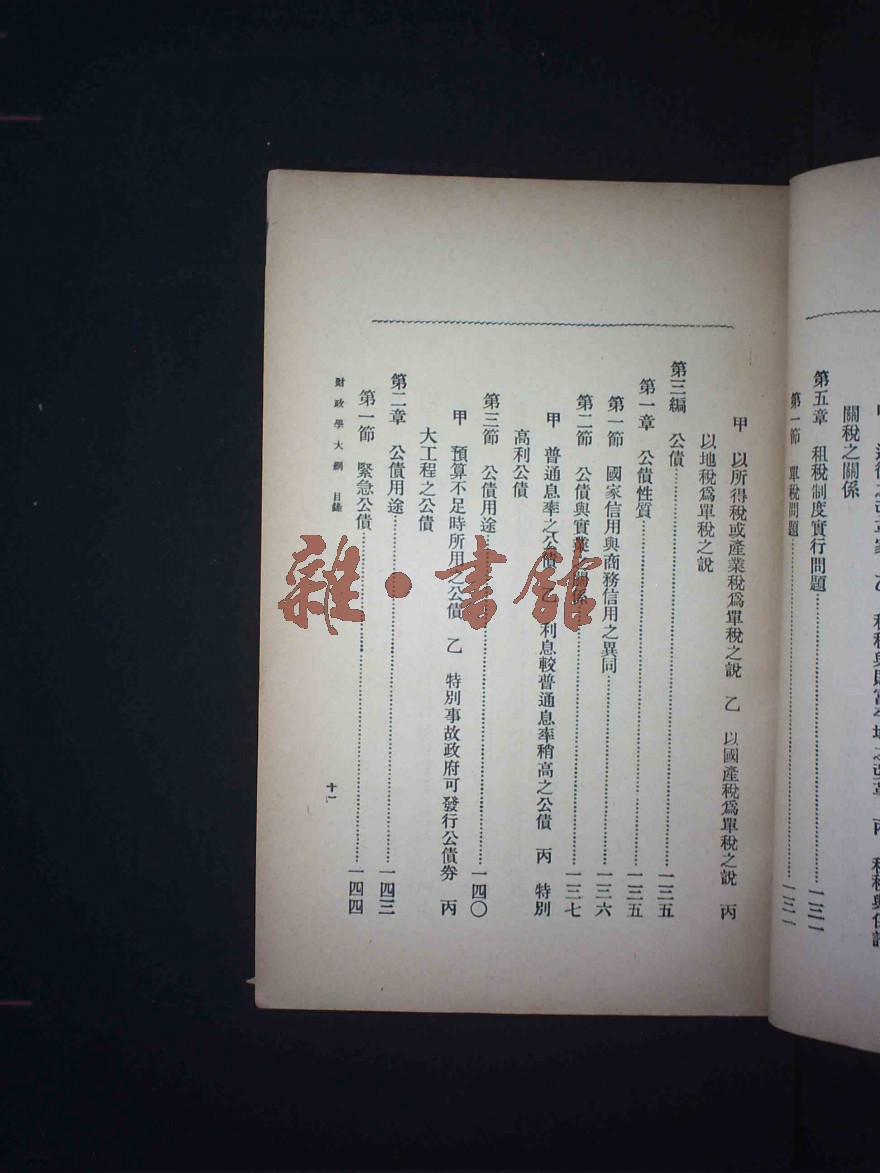 關稅之關係
第五章　租稅制度實行問題……一三一
第一節　單稅問題……一三一
甲　以所得稅或產業稅爲單稅之說　乙　以國產稅爲單稅之說　丙
以地稅爲單稅之說
第三編　公債……一三五
第一章　公債性質……一三五
第一節　國家信用與商務信用之異同……一三六
第二節　公債與實業之關係……一三七
甲　普通息率之公債　乙　利息較普通息率稍高之公債　丙　特別
高利公債
第三節　公債用途……一四〇
甲　預算不足時所用之公債　乙　特別事故政府可發行公債券　丙
大工程之公債
第二章　公債用途……一四三
第一節　緊急公債……一四四
財政學大綱　目錄
十一
雜·書館